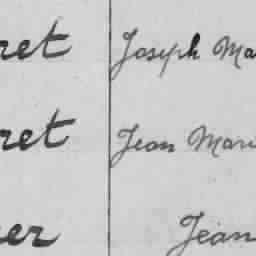 ret Joseph Ma
ret Jean Mari
er Jean